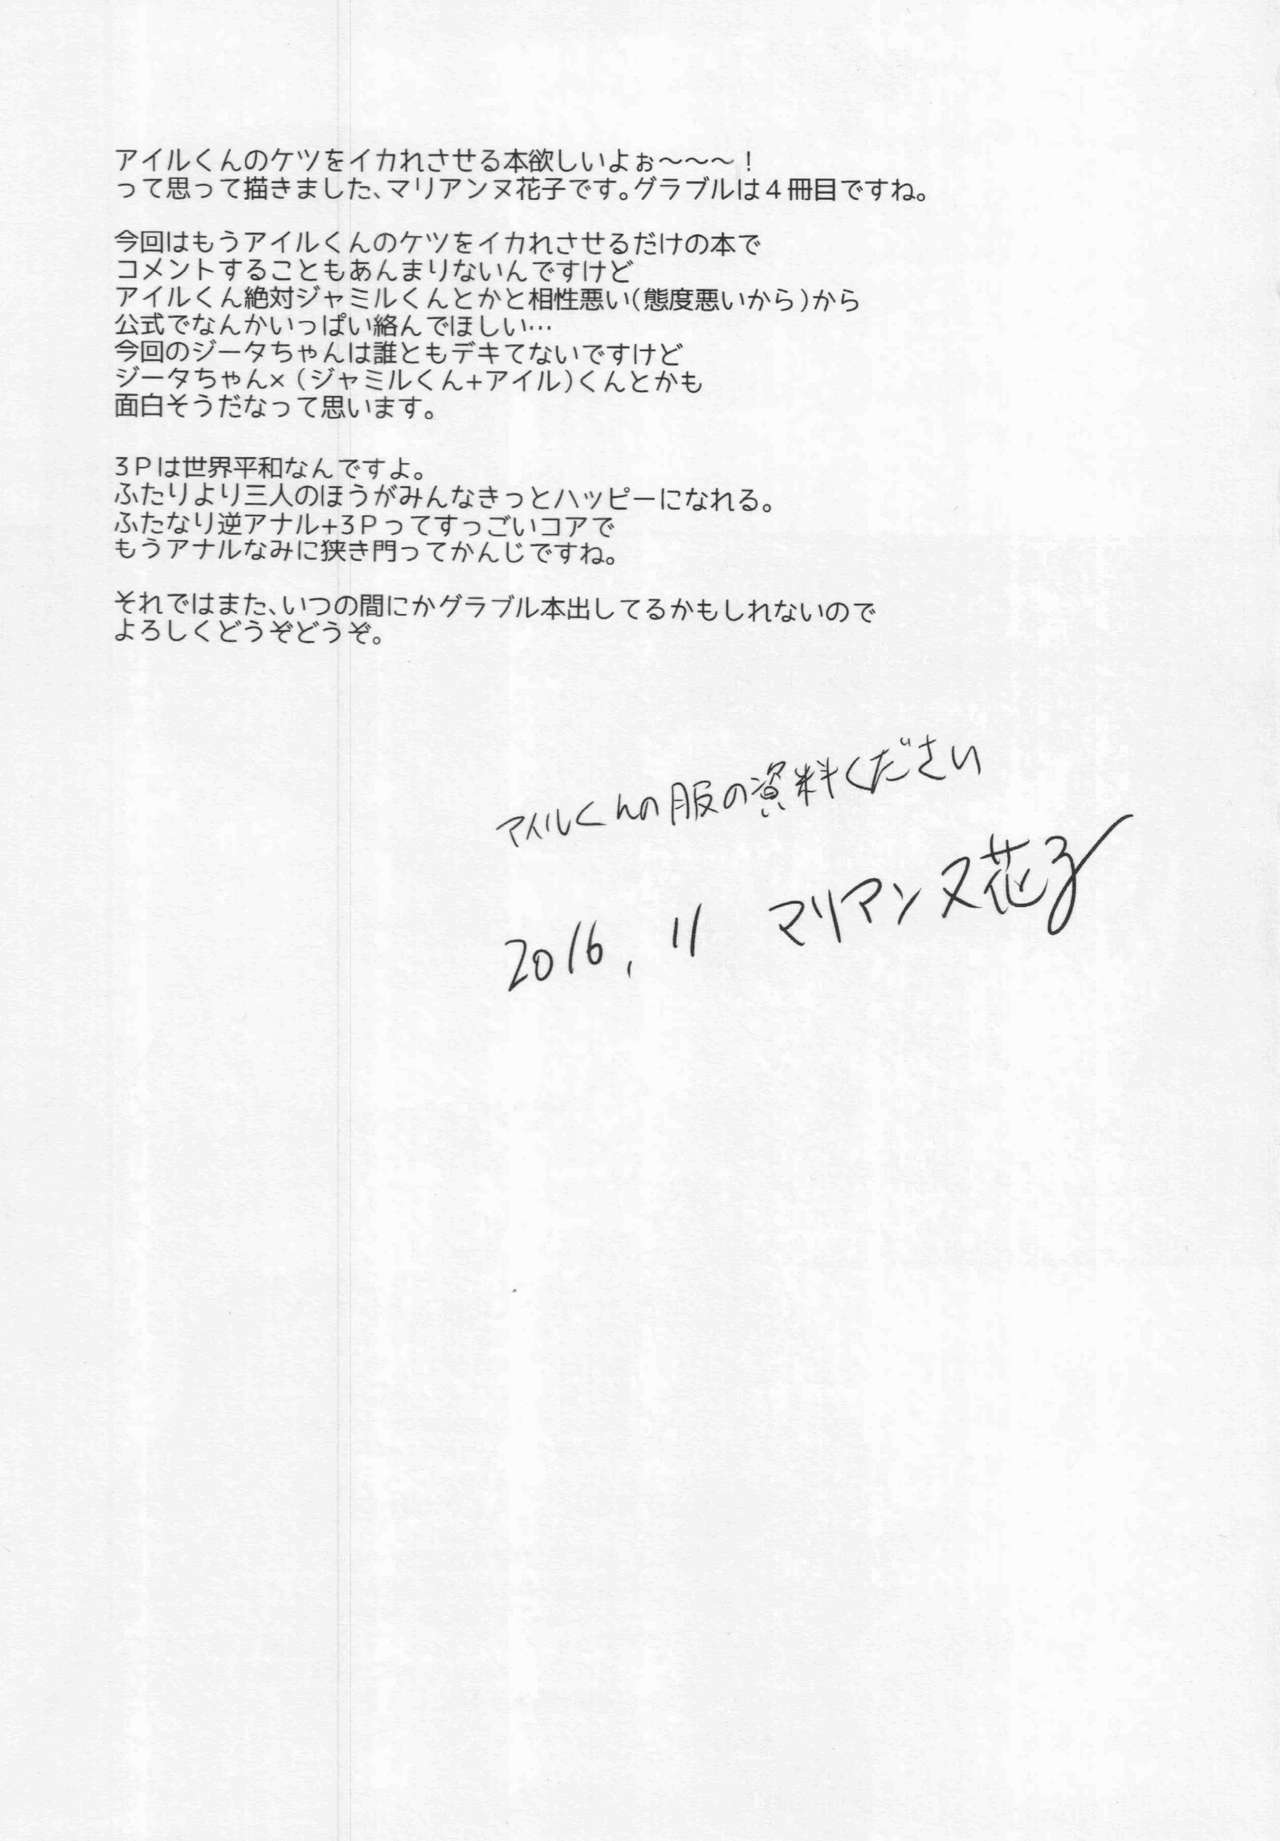 アイルくんのケツをイカれさせる本欲しいよぉ～～～！
って思って描きました、マリアンヌ花子です。グラブルは４冊目ですね。
今回はもうアイルくんのケツをイカれさせるだけの本で
コメントすることもあんまりないんですけど
アイルくん絶対ジャミルくんとかと相性悪い(態度悪いから)から
公式でなんかいっぱい絡んでほしい…
今回のジータちゃんは誰ともデキてないですけど
ジータちゃん×（ジャミルくん+アイル）くんとかも
面白そうだなって思います。
３Ｐは世界平和なんですよ。
ふたりより三人のほうがみんなきっとハッピーになれる。
ふたなり逆アナル+３Ｐってすっごいコアで
もうアナルなみに狭き門ってかんじですね。
それではまた、いつの間にかグラブル本出してるかもしれないので
よろしくどうぞどうぞ。
アイルくんの服の資料ください
2016.11 マリアンヌ花子